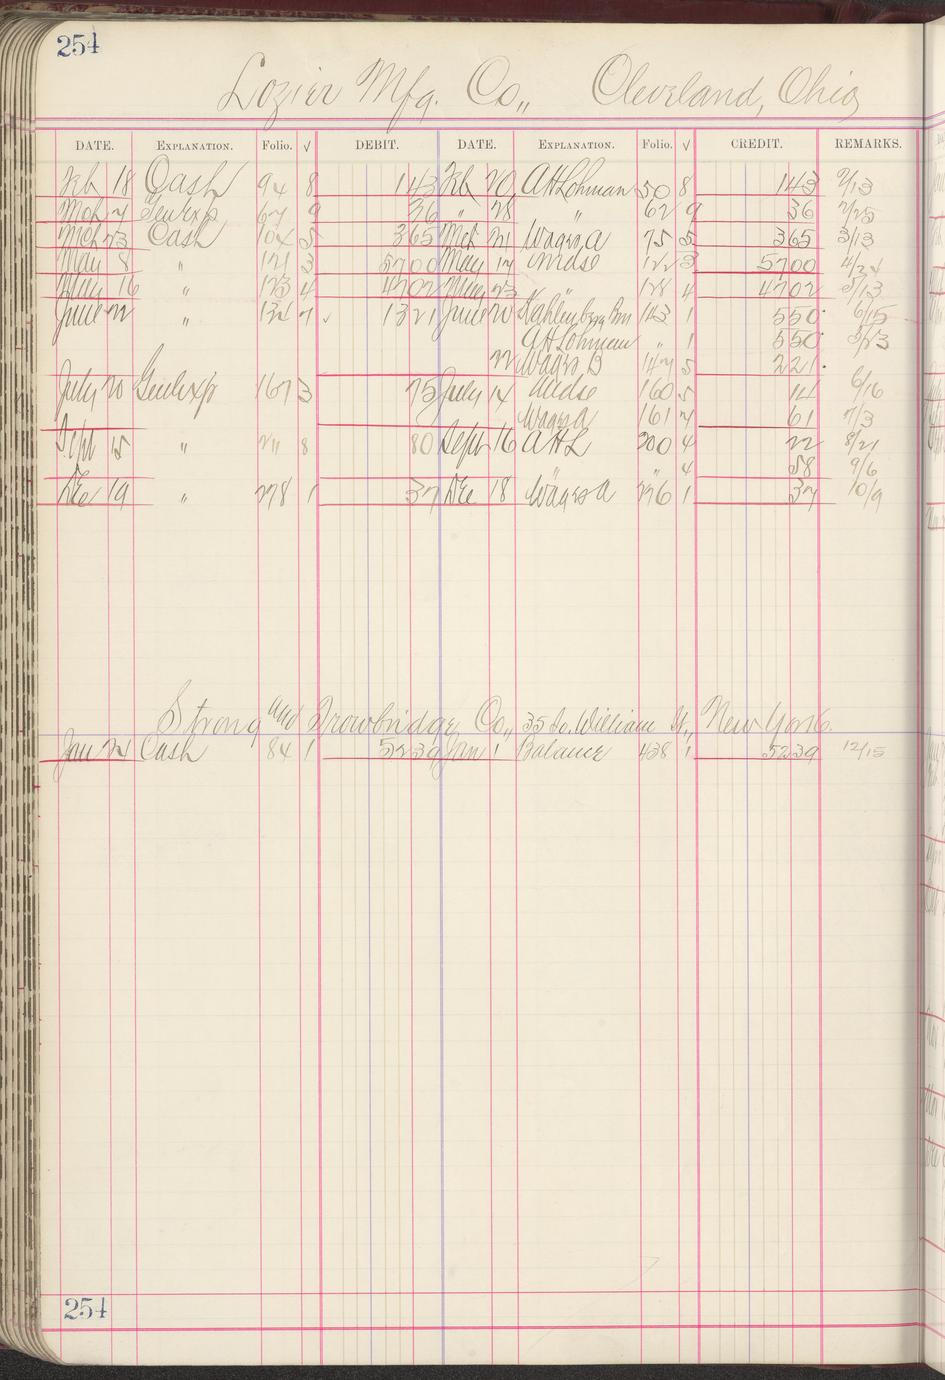 254
Lozier Mfg. Co., Cleveland, Ohio
DATE. EXPLANATION. Folio. √ DEBIT. DATE. EXPLANATION. Folio. √ CREDIT. REMARKS.
Feb 18 Cash 94 8 143 Feb 20 A H Lohman 50 8 143 2/13
Mch 7 Genl exp 67 9 36 " 28 " 62 9 36 2/25
Mch 23 Cash 104 5 365 Mch 21 Wages A 75 5 365 3/13
May 8 " 121 3 5700 May 17 Mdse 122 3 5700
May 16 " 123 4 4702 May 23 " 128 4 4702 5/13
June 22 " 134 7 1321 June 20 143 1 550 6/15
A H Lohman " 1 550
22 Wages B 147 5 221
July 20 Genl exp 167 3 75 July 14 Mdse 160 5 14 6/16
Wages A 161 7 61 7/3
Sept 15 " 211 8 80 Sept 16 A H L 200 4 22 8/21
" " 4 58 9/6
Dec 19 " 278 1 37 Dec 18 Wages A 276 1 37 10/9
Strong and Trowbridge Co., 35 So. William St., New York.
Jan 24 Cash 84 1 5239 Jan 1 Balance 438 1 5239 12/15
254